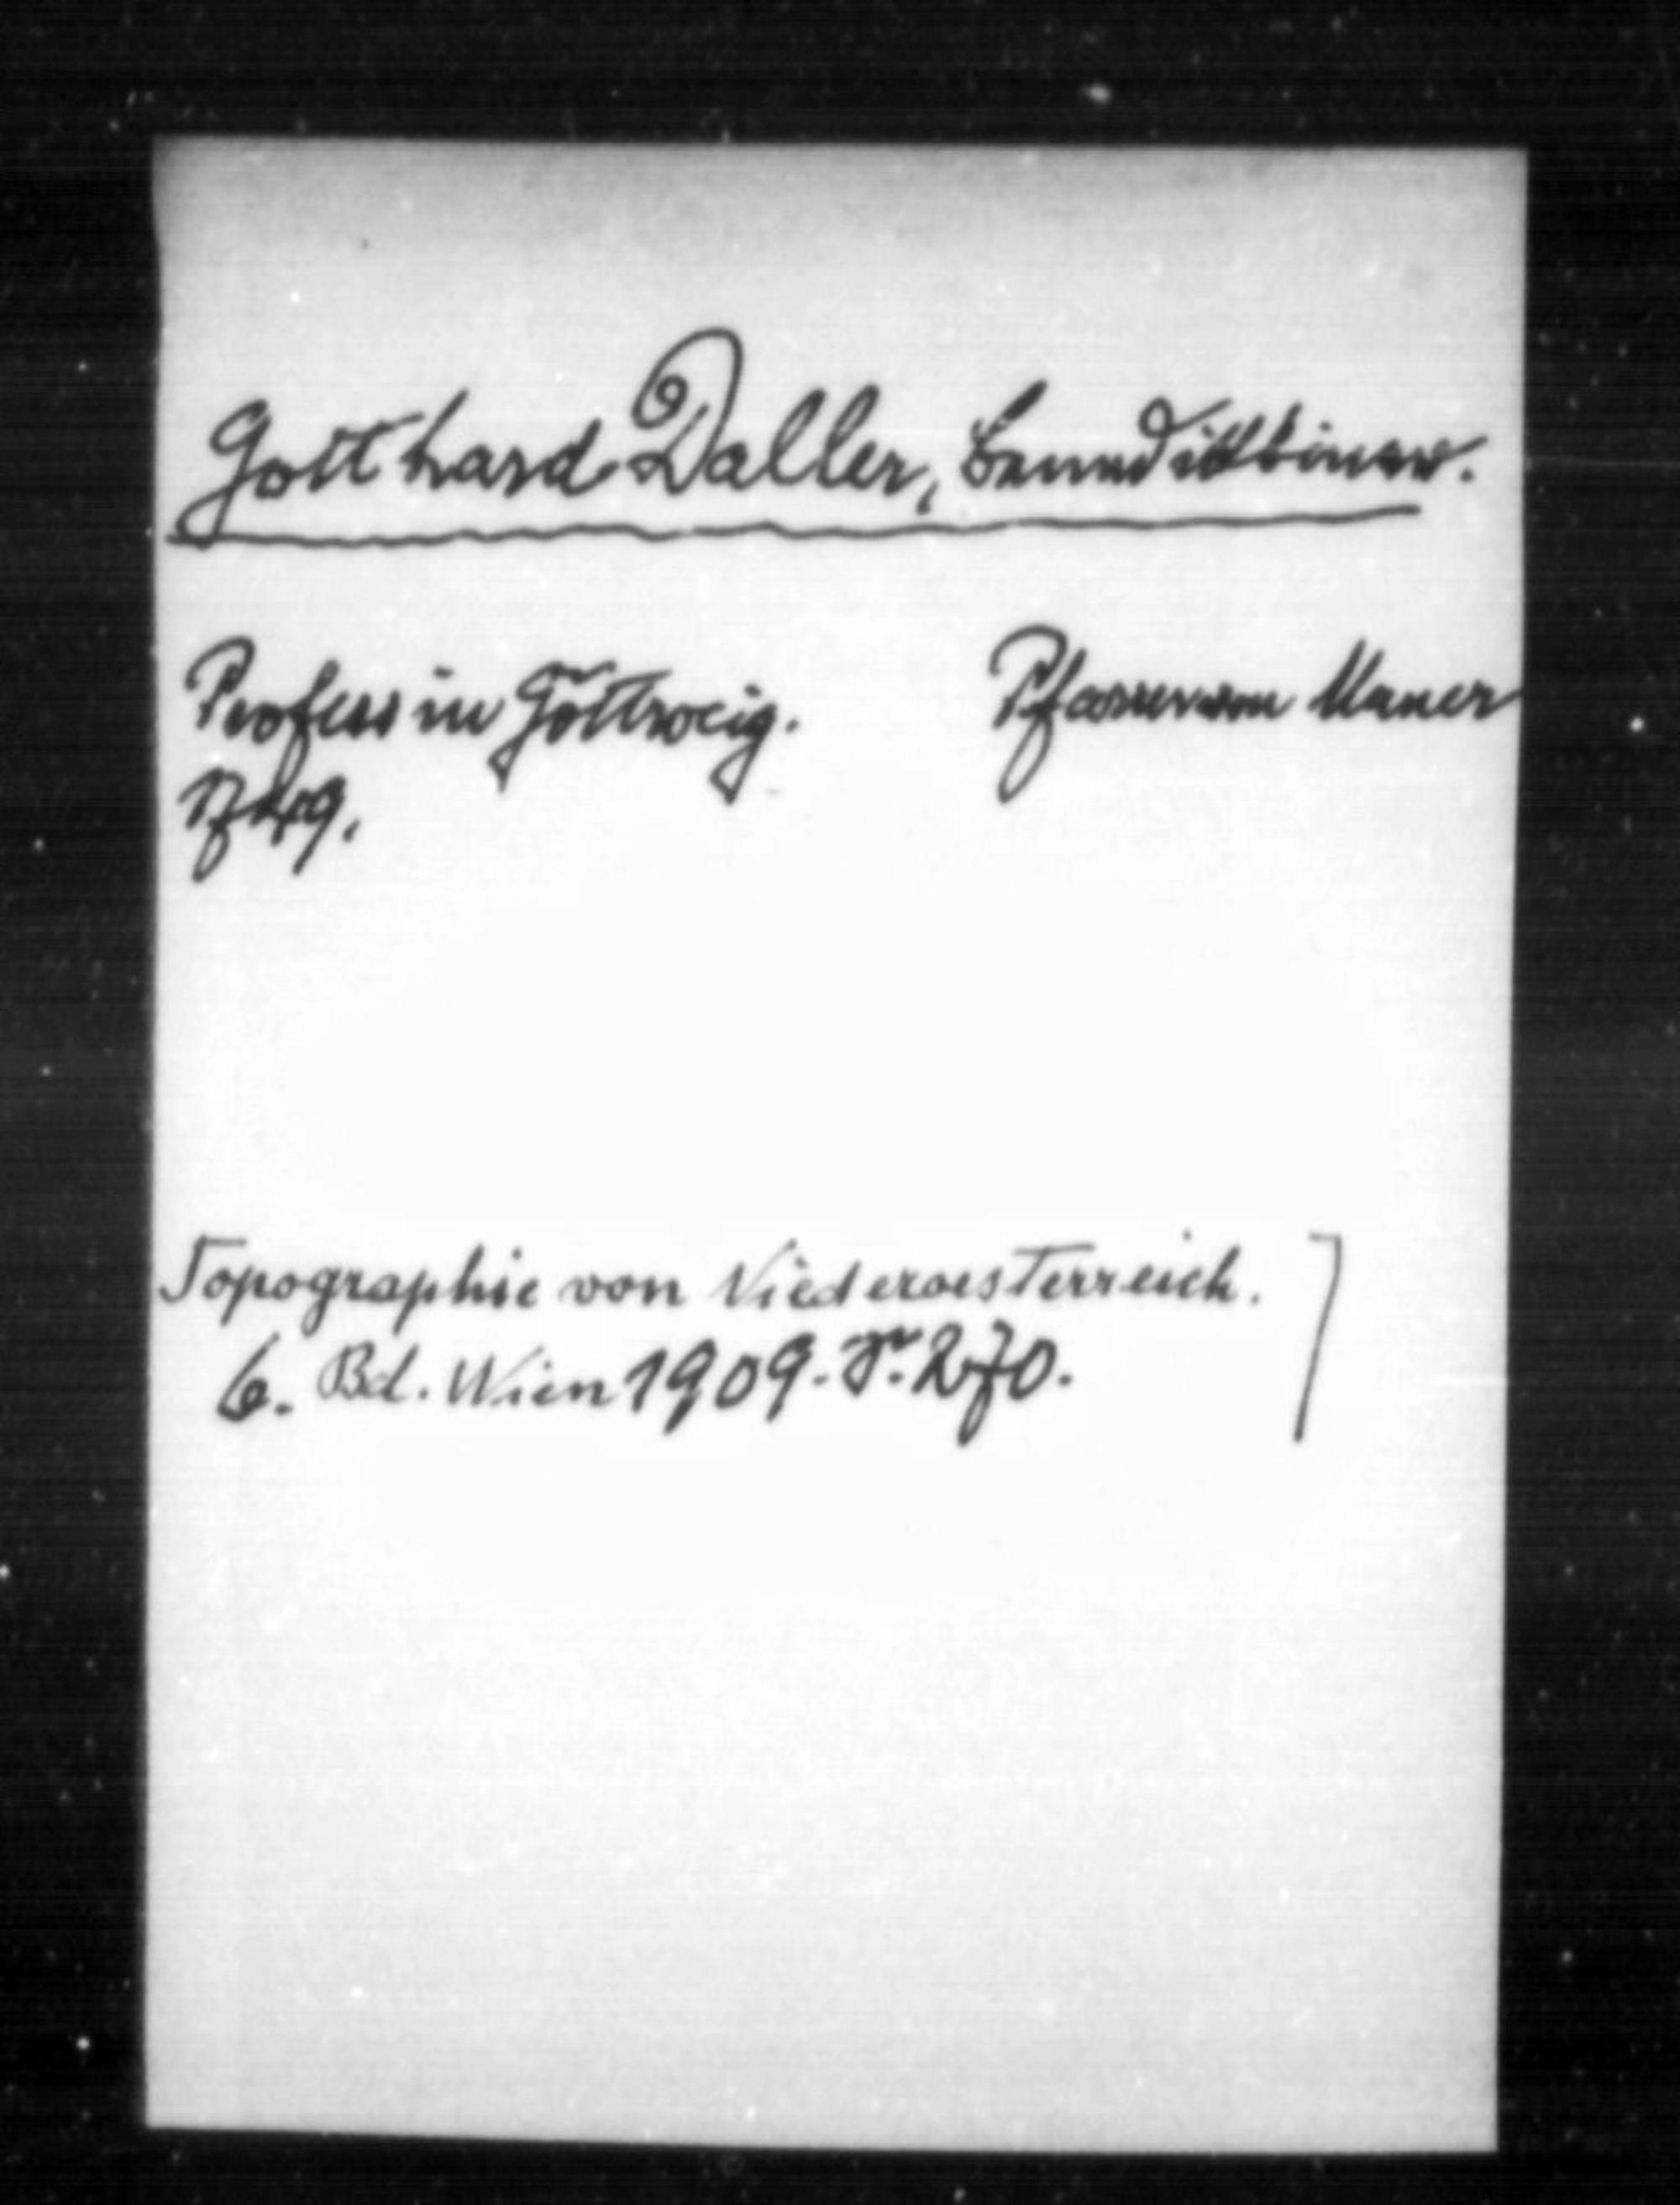 Gotthard Daller, Benediktiner.
Profess in Göttweig. Pfarrer von Mauer
1749.
Topographie von Niederoesterreich.
6. Bd. Wien 1909. S. 270.